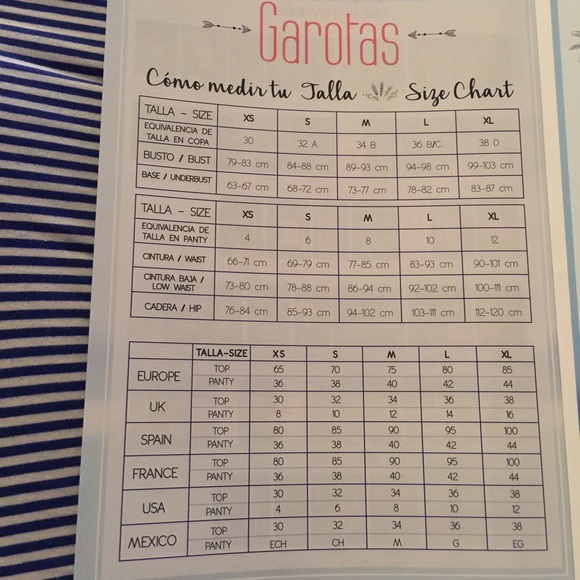 Garotas
Cómo medir tu Talla Size Chart
TALLA - SIZE XS S M L XL
EQUIVALENCIA DE TALLA EN COPA 30 32 A 34 B 36 B/C 38 D
BUSTO / BUST 79-83 cm 84-88 cm 89-93 cm 94-98 cm 99-103 cm
BASE / UNDERBUST 63-67 cm 68-72 cm 73-77 cm 78-82 cm 83-87 cm
TALLA - SIZE XS S M L XL
EQUIVALENCIA DE TALLA EN PANTY 4 6 8 10 12
CINTURA / WAIST 66-71 cm 69-79 cm 77-85 cm 83-93 cm 90-101 cm
CINTURA BAJA / LOW WAIST 73-80 cm 78-88 cm 86-94 cm 92-102 cm 100-111 cm
CADERA / HIP 76-84 cm 85-93 cm 94-102 cm 103-111 cm 112-120 cm
TALLA-SIZE XS S M L XL
EUROPE TOP 65 70 75 80 85
PANTY 36 38 40 42 44
UK TOP 30 32 34 36 38
PANTY 8 10 12 14 16
SPAIN TOP 80 85 90 95 100
PANTY 36 38 40 42 44
FRANCE TOP 80 85 90 95 100
PANTY 36 38 40 42 44
USA TOP 30 32 34 36 38
PANTY 4 6 8 10 12
MEXICO TOP 30 32 34 36 38
PANTY ECH CH M G EG